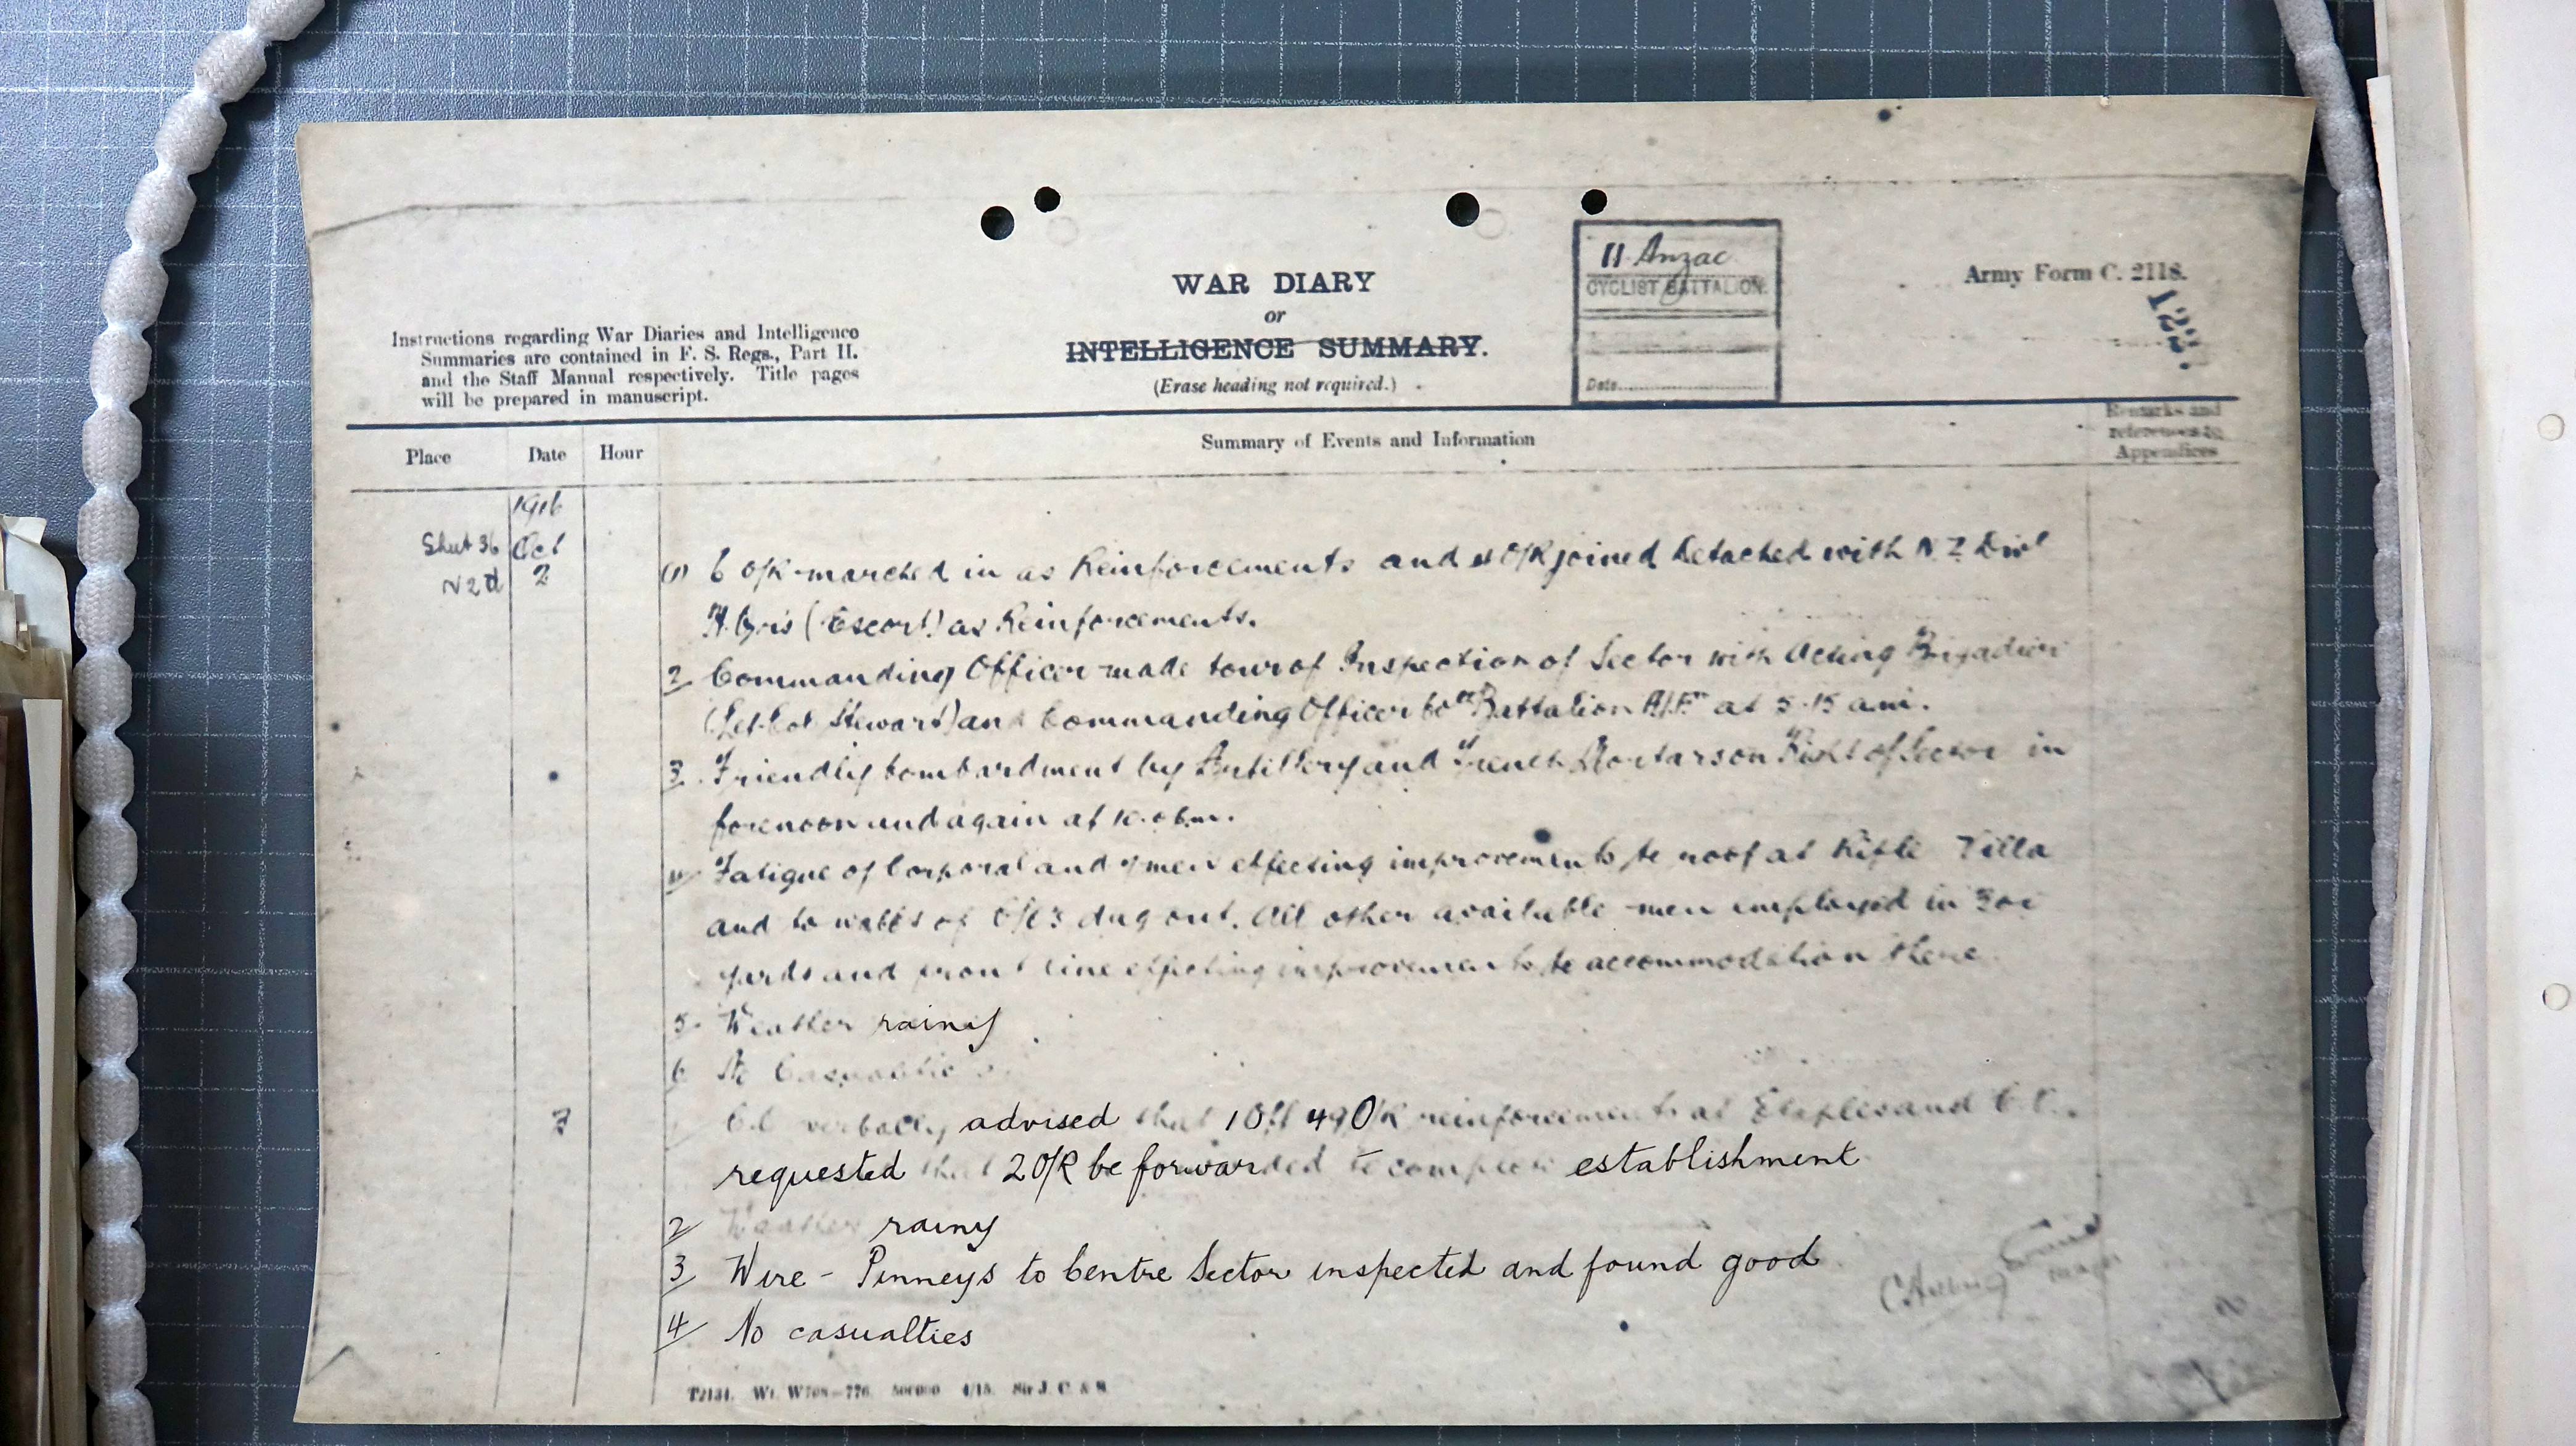 WAR DIARY
or
INTELLIGENCE SUMMARY.
(Erase heading not required.)
Instructions regarding War Diaries and Intelligence
Summaries are contained in F. S. Regs., Part II.
and the Staff Manual respectively. Title pages
will be prepared in manuscript.
11 Anzac
CYCLIST BATTALION.
Date
Army Form C. 2118.
Place
Date
Hour
Summary of Events and Information
Remarks and
references to
Appendices
1916
Sheet 36 Oct
N2d 2
(1) 6 O/R marched in as Reinforcements and O/R joined Detached with N Z Divl
(Escort) as Reinforcements.
2 Commanding Officer made tour of Inspection of Sector with Acting Brigadier
(Lt-Col Stewart) and Commanding Officer 60th Battalion AIF at 5.15 am.
3 Friendly bombardment by Artillery and Trench Mortars on Right of Sector in
forenoon and again at
4 Fatigue of Corporal and men effecting improvements to roof at Rifle Villa
and to walls of dug out. All other available men employed in
yards and front line effecting improvements to accommodation there
5. Weather rainy
6 No Casualties
3 C.O. verbally advised that 1 Off 49 O/R reinforcements at Etaples and C.O.
requested that 20/R be forwarded to complete establishment
2 Weather rainy
3 Wire - Pinneys to Centre Sector inspected and found good
4 No casualties
Major